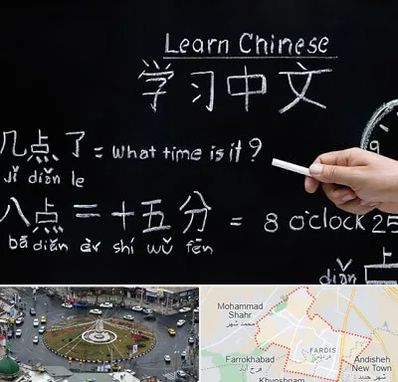 Learn Chinese
学习中文
9
几点了 = What time is it?
jǐ diǎn le
八点二十五分 = 8 o'clock 25
bā diǎn èr shí wǔ fēn
上
diǎn
Mohammad
Shahr
محمد شهر
FARDIS
Farrokhabad
فرخ آباد
Andisheh
New Town
شهر جدید